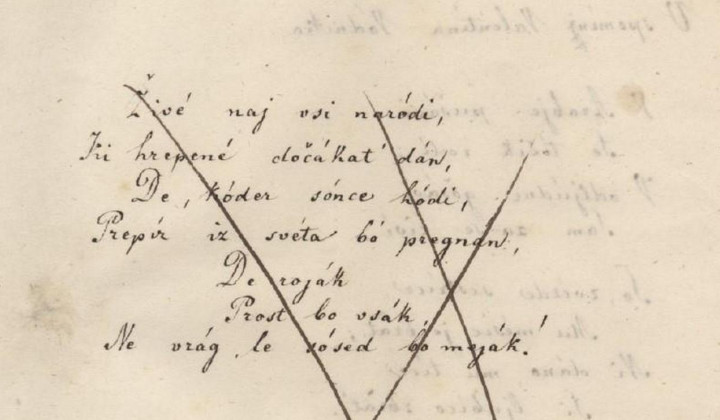 Živé naj vsi naródi,
Ki hrepené dočákat' dán,
De, kóder sónce hódi,
Prepír iz svéta bó pregnan,
De roják
Prost bo vsák,
Ne vrág, le sósed bo meják!